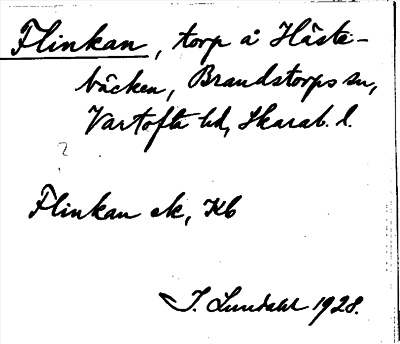 Flinkan, torp å Häste-
bäcken, Brandstorps sn,
Vartofta hd, Skarab. l.
?
Flinkan ek, Kb
I. Lundahl 1928.